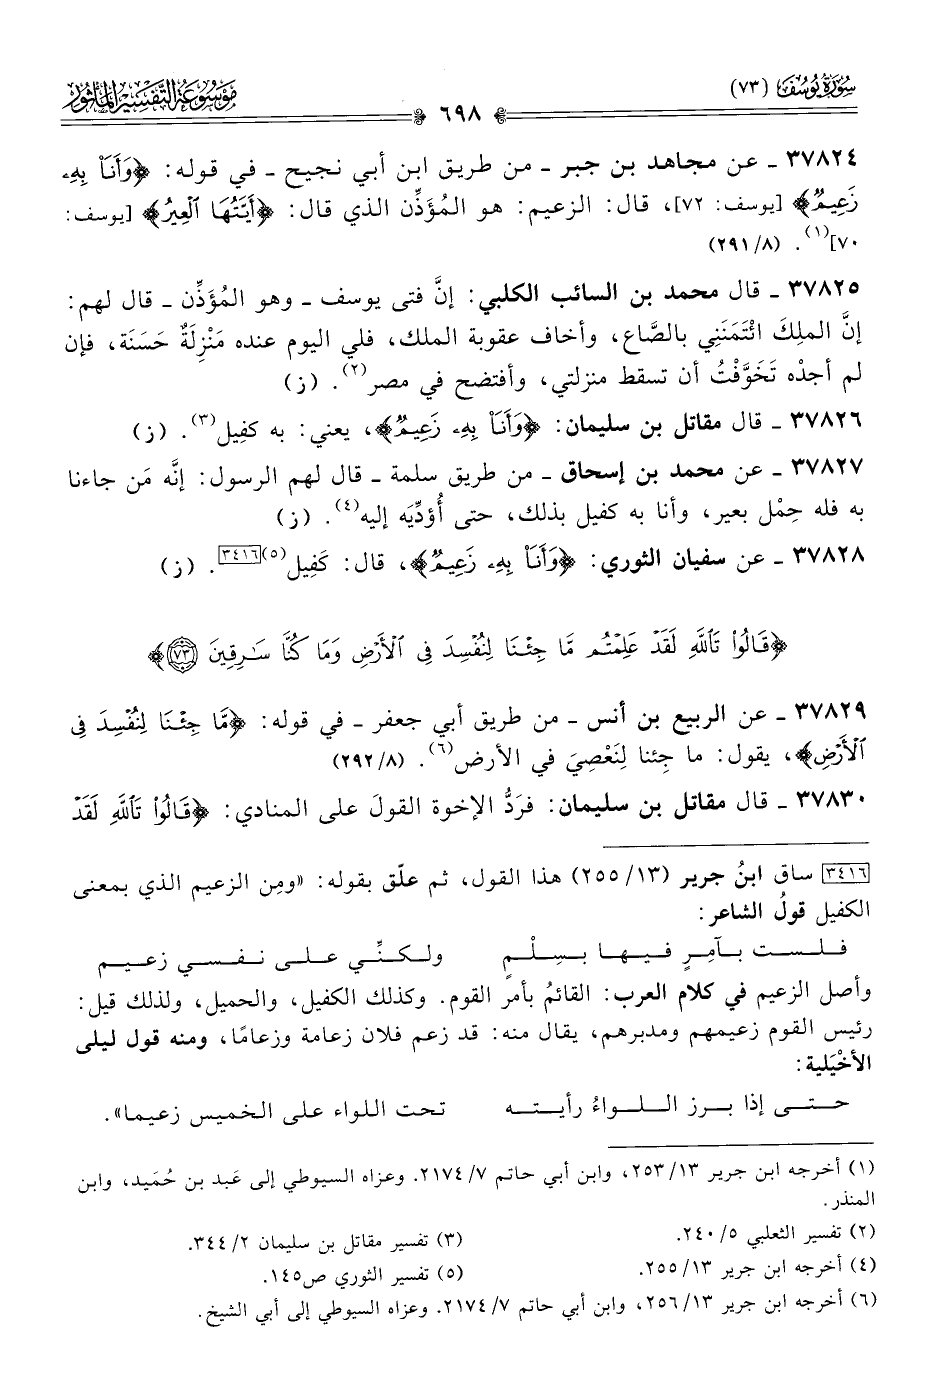 سُورَةُ يُوسُفَ (٧٣)
٦٩٨
مَوْسُوعَة التَّفْسِير المَأْثُور
٣٧٨٢٤ ـ عن مجاهد بن جبر ـ من طريق ابن أبي نجيح ـ في قوله: ﴿وَأَنَا۠ بِهِۦ
زَعِيمٌ﴾ [يوسف: ٧٢]، قال: الزعيم: هو المُؤَذِّن الذي قال: ﴿أَيَّتُهَا ٱلْعِيرُ﴾ [يوسف:
٧٠](١). (٨/ ٢٩١)
٣٧٨٢٥ ـ قال محمد بن السائب الكلبي: إنَّ فتى يوسف ـ وهو المُؤَذِّن ـ قال لهم:
إنَّ الملِكَ ائْتَمَنَنِي بالصَّاع، وأخاف عقوبة الملك، فلي اليوم عنده مَنْزِلَةٌ حَسَنَة، فإن
لم أجدْه تَخَوَّفْتُ أن تسقط منزلتي، وأفتضح في مصر(٢). (ز)
٣٧٨٢٦ ـ قال مقاتل بن سليمان: ﴿وَأَنَا۠ بِهِۦ زَعِيمٌ﴾، يعني: به كفِيل(٣). (ز)
٣٧٨٢٧ ـ عن محمد بن إسحاق ـ من طريق سلمة ـ قال لهم الرسول: إنَّه مَن جاءنا
به فله حِمْل بعير، وأنا به كفيل بذلك، حتى أُؤدِّيَه إليه(٤). (ز)
٣٧٨٢٨ ـ عن سفيان الثوري: ﴿وَأَنَا۠ بِهِۦ زَعِيمٌ﴾، قال: كَفِيل(٥)[٣٤١٦]. (ز)
﴿قَالُوا۟ تَٱللَّهِ لَقَدْ عَلِمْتُم مَّا جِئْنَا لِنُفْسِدَ فِى ٱلْأَرْضِ وَمَا كُنَّا سَـٰرِقِينَ ٧٣﴾
٣٧٨٢٩ ـ عن الربيع بن أنس ـ من طريق أبي جعفر ـ في قوله: ﴿مَّا جِئْنَا لِنُفْسِدَ فِى
ٱلْأَرْضِ﴾، يقول: ما جِئنا لِنَعْصِيَ في الأرض(٦). (٨/ ٢٩٢)
٣٧٨٣٠ ـ قال مقاتل بن سليمان: فرَدُّ الإخوة القولَ على المنادي: ﴿قَالُوا۟ تَٱللَّهِ لَقَدْ
[٣٤١٦] ساق ابنُ جرير (١٣/ ٢٥٥) هذا القول، ثم علّق بقوله: «ومِن الزعيم الذي بمعنى
الكفيل قولُ الشاعر:
فلست بآمِرٍ فيها بسِلْمٍ ولكنِّي على نفسي زعيم
وأصل الزعيم في كلام العرب: القائمُ بأمر القوم. وكذلك الكفيل، والحميل، ولذلك قيل:
رئيس القوم زعيمهم ومدبرهم، يقال منه: قد زعم فلان زعامة وزعامًا، ومنه قول ليلى
الأخْيَلية:
حتى إذا برز اللواءُ رأيته تحت اللواء على الخميس زعيما».
(١) أخرجه ابن جرير ١٣/ ٢٥٣، وابن أبي حاتم ٧/ ٢١٧٤. وعزاه السيوطي إلى عَبد بن حُمَيد، وابن
المنذر.
(٢) تفسير الثعلبي ٥/ ٢٤٠. (٣) تفسير مقاتل بن سليمان ٢/ ٣٤٤.
(٤) أخرجه ابن جرير ١٣/ ٢٥٥. (٥) تفسير الثوري ص١٤٥.
(٦) أخرجه ابن جرير ١٣/ ٢٥٦، وابن أبي حاتم ٧/ ٢١٧٤. وعزاه السيوطي إلى أبي الشيخ.